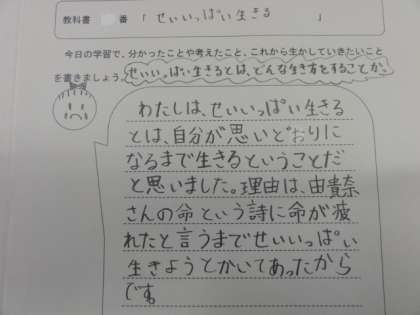 教科書 番「せいいっぱい生きる」
今日の学習で、分かったことや考えたこと、これから生かしていきたいこと
を書きましょう。せいいっぱい生きるとは、どんな生き方をすることか。
わたしは、せいいっぱい生きる
とは、自分が思いどおりに
なるまで生きるということだ
と思いました。理由は、由貴奈
さんの命という詩に命が疲
れたと言うまでせいいっぱい
生きようとかいてあったから
です。